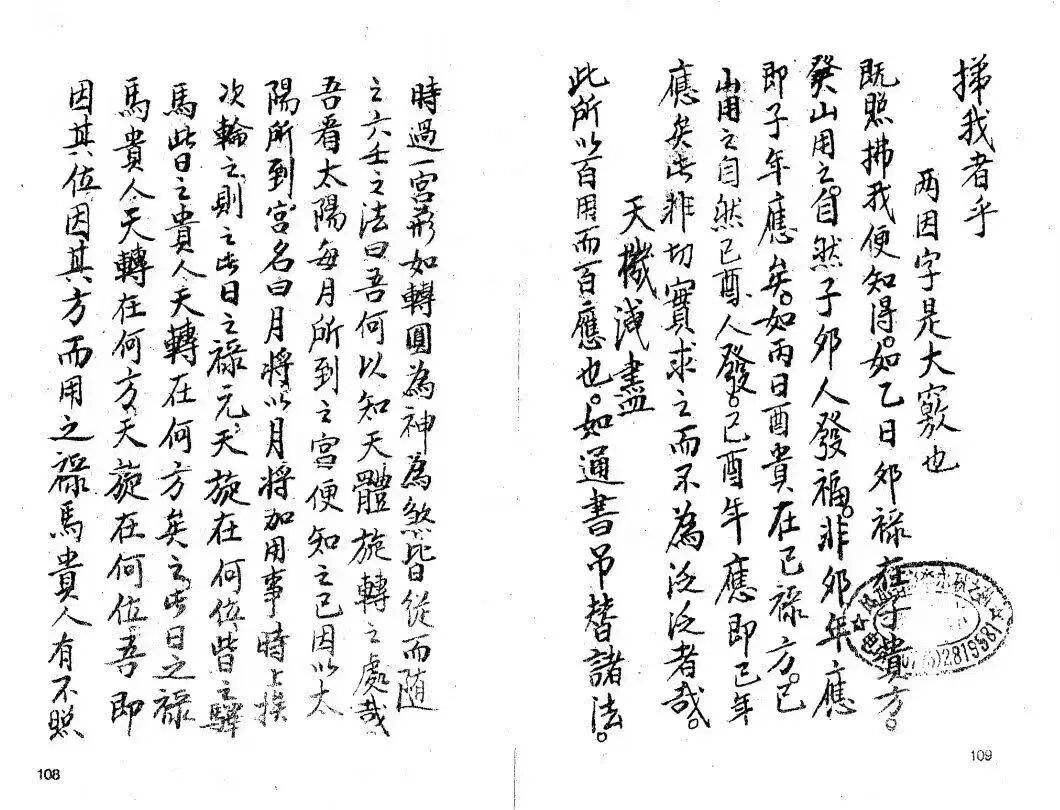 時過一宮形如轉圓為神為煞皆從而隨
之六壬之法曰吾何以知天體旋轉之處哉
吾看太陽每月所到之宮便知之已因以太
陽所到宮名曰月將以月將加用事時上挨
次輪之則之此日之禄元天旋在何位皆之驛
馬此日之貴人天轉在何方矣之此日之禄
馬貴人天轉在何方天旋在何位吾即
因其位因其方而用之禄馬貴人有不照
108
拂我者乎
两因字是大竅也
既照拂我便知得。如乙日卯禄在子貴方。
癸山用之。自然子卯人發福。非卯年應
即子年應矣。如丙日酉貴在已禄方。已
山用之自然已酉人發。已酉年應即已年
應矣此非切實求之而不為泛泛者哉。
天機洩盡
此所以百用而百應也。如通書吊替諸法。
109